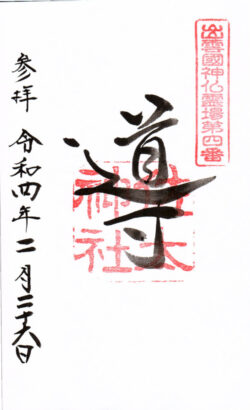 出雲國神仏霊場第四番
導
佐太
神社
参拝 令和四年二月二十六日